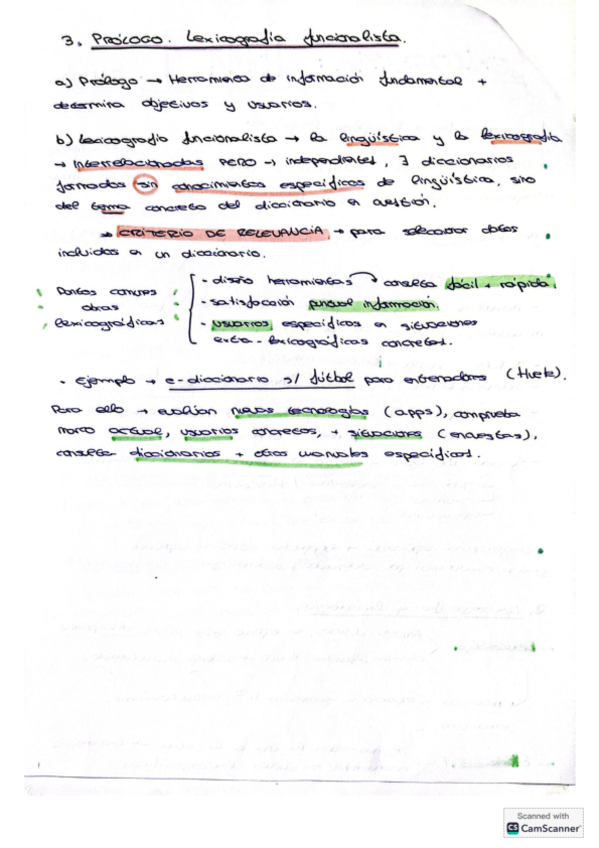 3. PRÓLOGO. Lexicografía funcionalista.
a) Prólogo → Herramienta de información fundamental +
determina objetivos y usuarios.
b) Lexicografía funcionalista → la lingüística y la lexicografía
→ interrelacionadas PERO → independientes, ∃ diccionarios
formados sin conocimientos específicos de lingüística, sino
del tema concreto del diccionario en cuestión.
→ CRITERIO DE RELEVANCIA → para seleccionar datos
incluidos en un diccionario.
Puntos comunes
obras
lexicográficas
- diseño herramientas → consulta fácil + rápida.
- satisfacción puntual información.
- usuarios específicos en situaciones
extra-lexicográficas concretas.
· Ejemplo → e-diccionario s/ fútbol para entrenadores (Huete).
Para ello → evalúan nuevas tecnologías (apps), comprueba
marco actual, usuarios concretos, + situaciones (encuestas),
consulta diccionarios + otros manuales específicos.
Scanned with
CS CamScanner